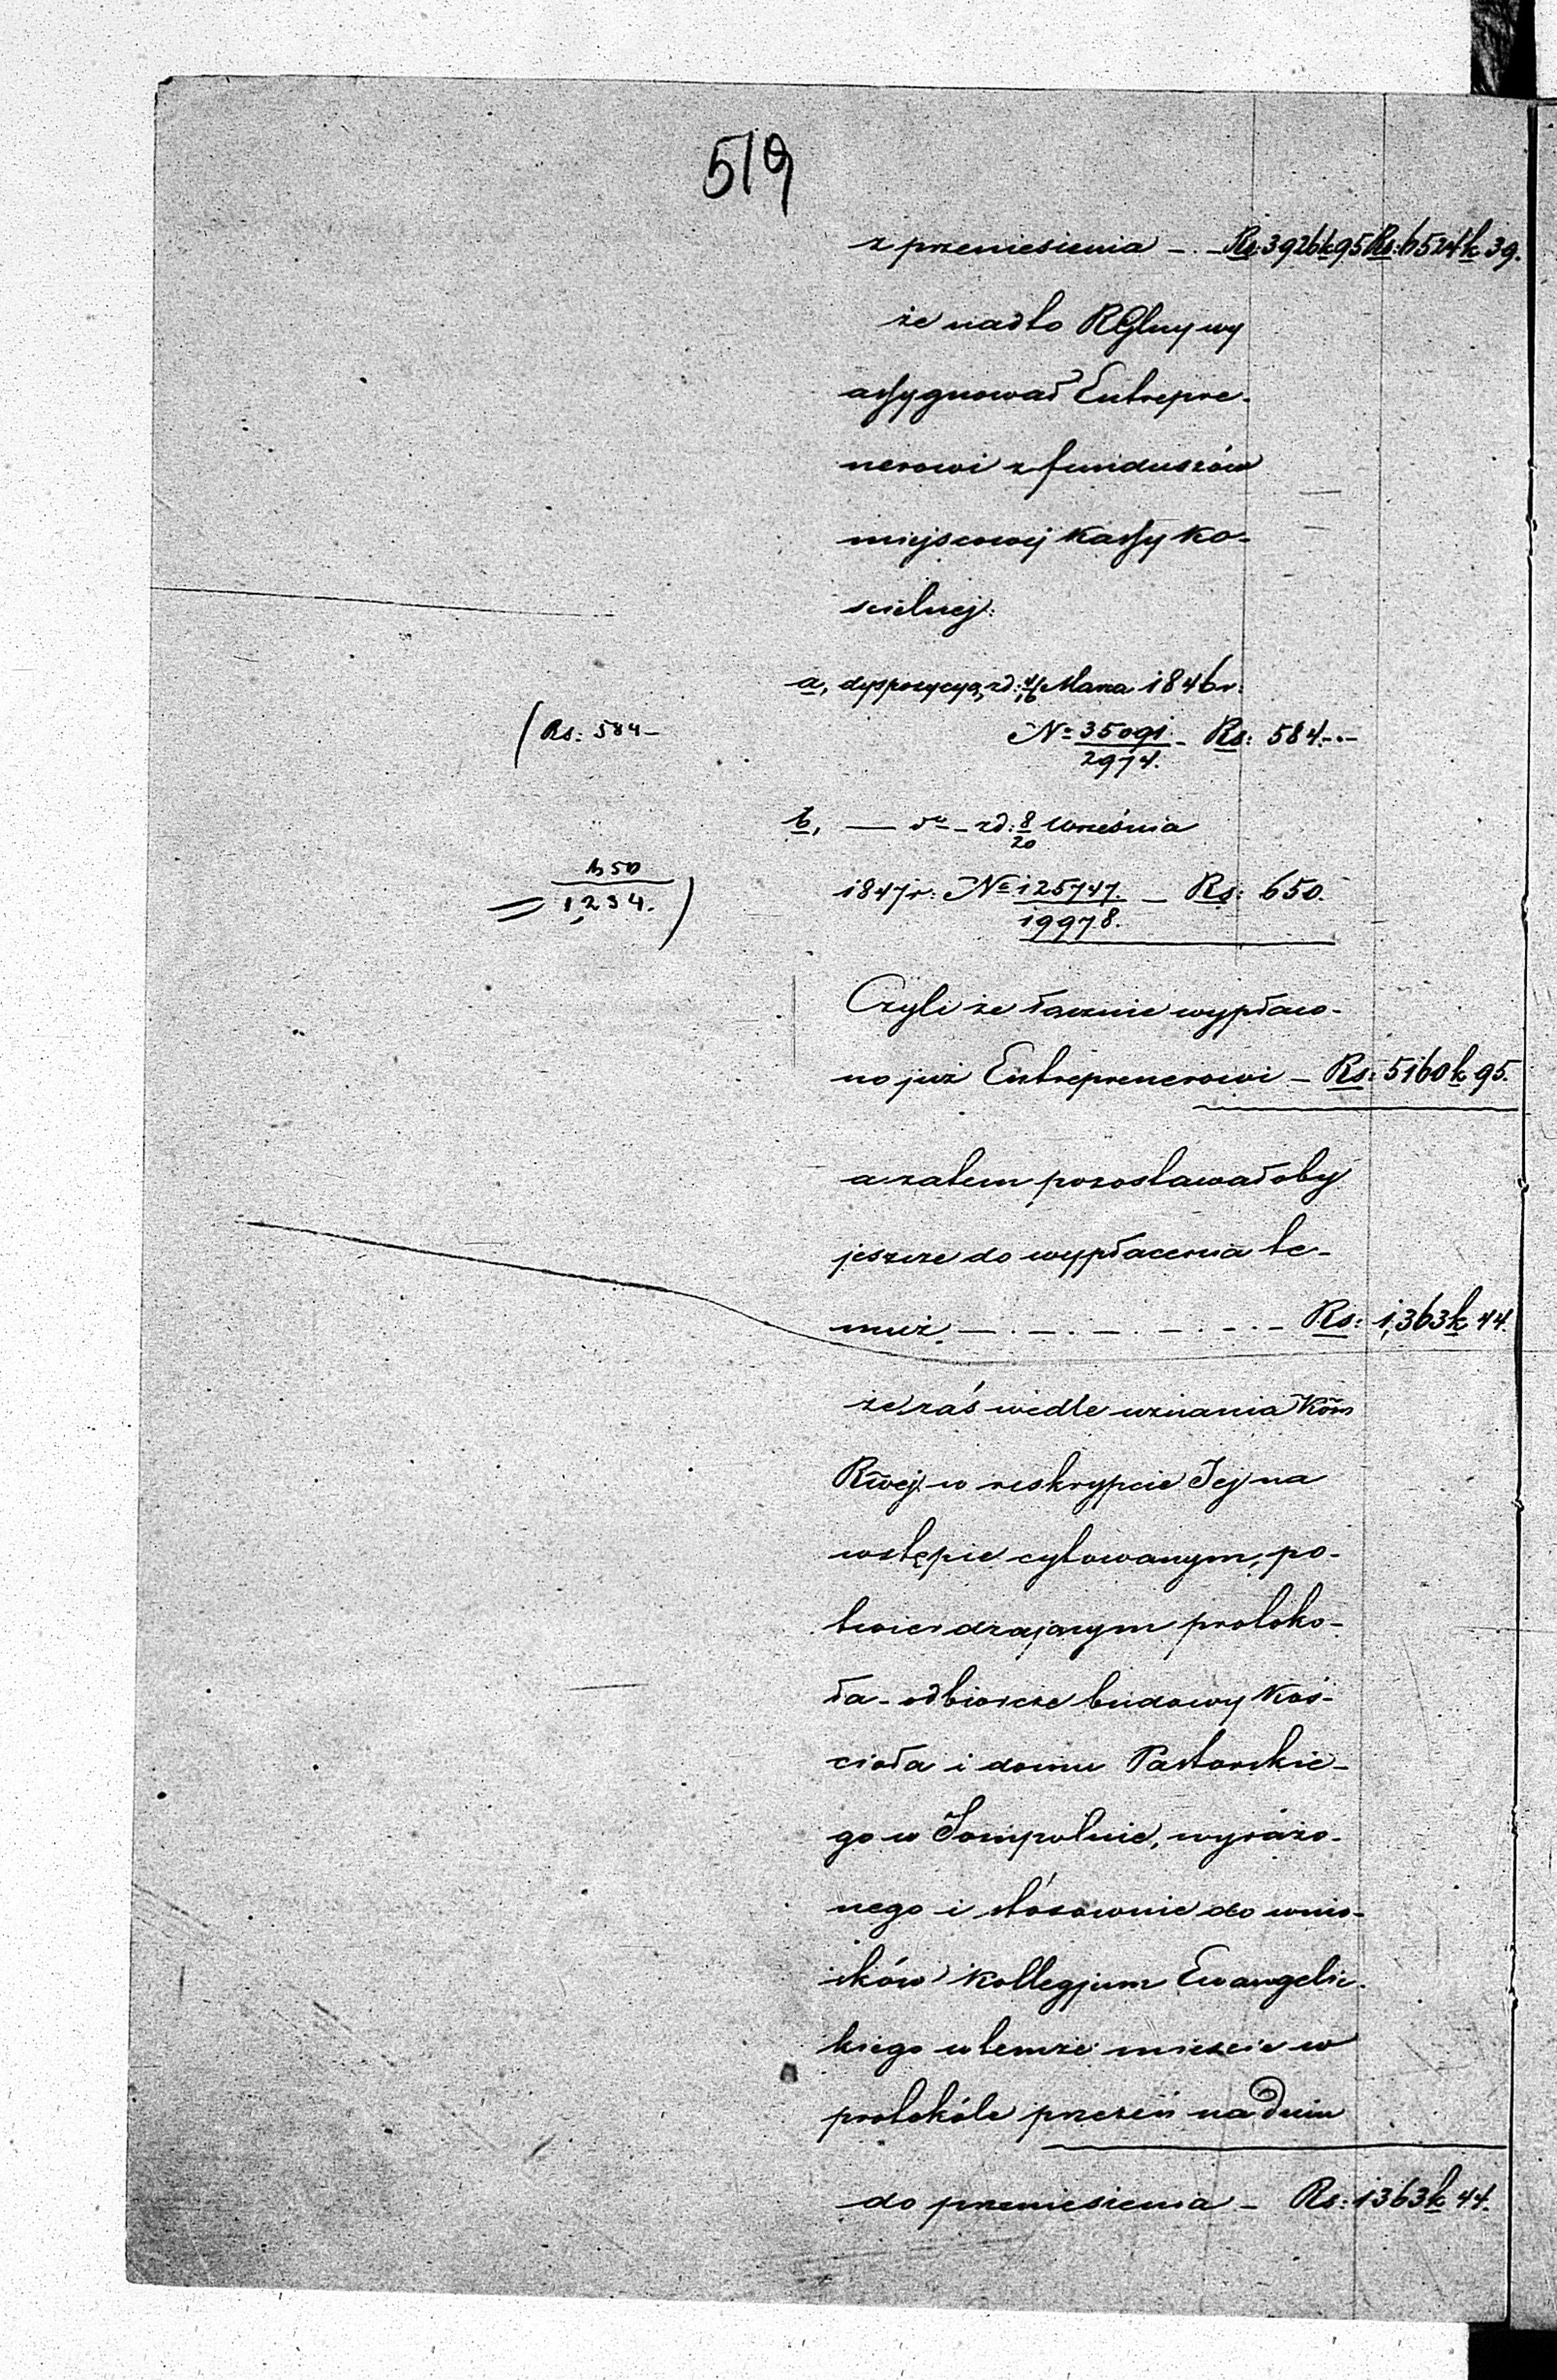 519
z przeniesienia - . - Rs: 3926 k 95 Rs: 6524 k 39.
że nadto RGlny wy
assygnował Entrepre-
nerowi z funduszów
miejscowej Kassy Ko-
scielnej:
a, dyspozycyą z d: 4/16 Marca 1846 r:
(Rs: 584 -
No 35091/2974. - Rs: 584. - . -
b, — do - z d: 8/20 Września
650
1847 r: No 125747./19978. - Rs: 650.
= 1,234. )
Czyli że łącznie wypłaco-
no już Entreprenerowi - Rs: 5160 k 95.
a zatem pozostawałoby
jeszcze do wypłacenia te-
muż - . - . - . - . - . - Rs: 1,363 k 44.
że zaś wedle uznania Kom̃
Rw̃ej w reskrypcie Jej na
wstępie cytowanym, po-
twierdzającym protoko-
ła - odbiorcze budowy Koś-
cioła i domu Pastorskie-
go w Sompolnie, wyrażo-
nego i stósownie do wnio-
sków Kollegjum Ewangelic-
kiego w temże mieście w
protokóle przezeń na dniu
do przeniesienia - Rs: 1363 k 44.